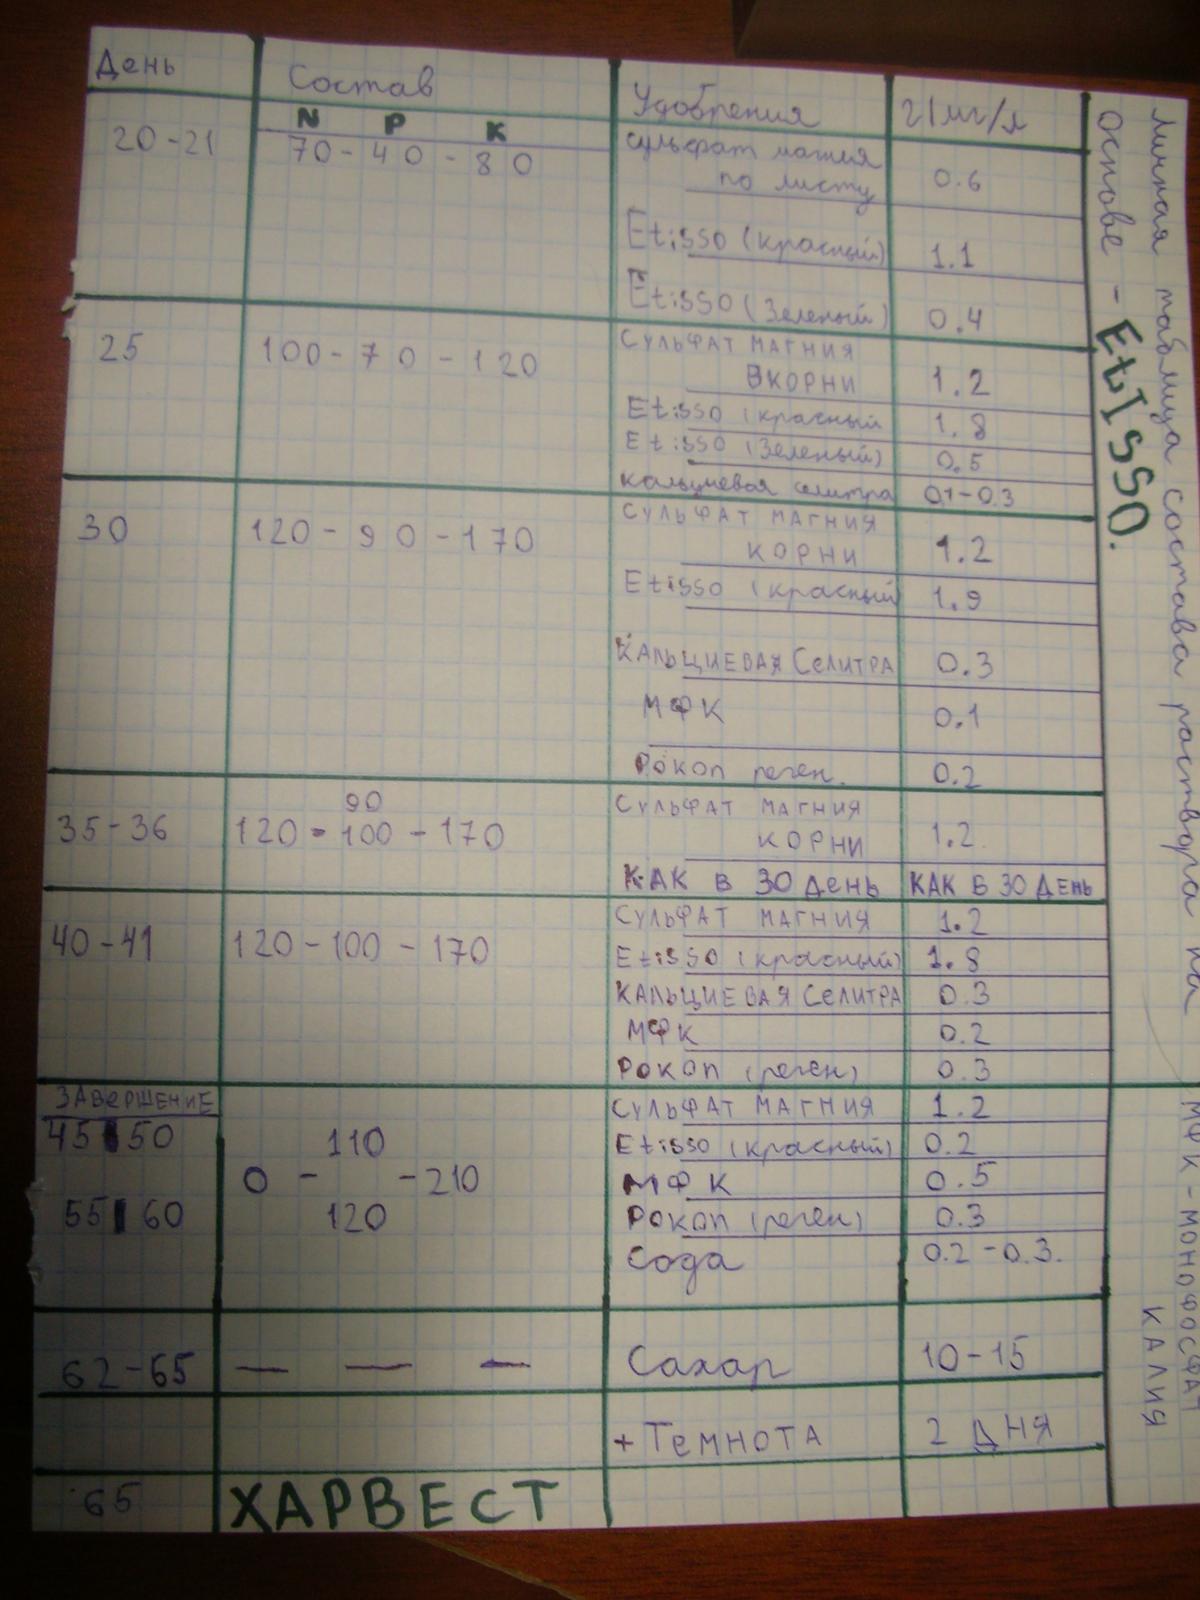 День Состав Удобрения г/мг/л
N P K
20-21 70-40-80 сульфат магния
по листу 0.6
Etisso (красный) 1.1
Etisso (Зеленый) 0.4
25 100-70-120 СУЛЬФАТ МАГНИЯ
В КОРНИ 1.2
Etisso (красный 1.8
Etisso (Зеленый) 0.5
кальциевая селитра 0.1-0.3
30 120-90-170 СУЛЬФАТ МАГНИЯ
КОРНИ 1.2
Etisso (красный) 1.9
КАЛЬЦИЕВАЯ СЕЛИТРА 0.3
МФК 0.1
Рокоп реген. 0.2
90
35-36 120-100-170 СУЛЬФАТ МАГНИЯ
КОРНИ 1.2.
КАК В 30 ДЕНЬ КАК В 30 ДЕНЬ
40-41 120-100-170 СУЛЬФАТ МАГНИЯ 1.2
Etisso (красный) 1.8
КАЛЬЦИЕВАЯ СЕЛИТРА 0.3
МФК 0.2
РОКОП (реген) 0.3
ЗАВЕРШЕНИЕ СУЛЬФАТ МАГНИЯ 1.2
45 50 110 Etisso (красный) 0.2
0 - -210 МФК 0.5
55 60 120 РОКОП (реген) 0.3
Сода 0.2-0.3.
62-65 — — — Сахар 10-15
+ТЕМНОТА 2 ДНЯ
65 ХАРВЕСТ
личная таблица состава раствора на
основе - EtISSO.
МФК-МОНОФОСФАТ
КАЛИЯ